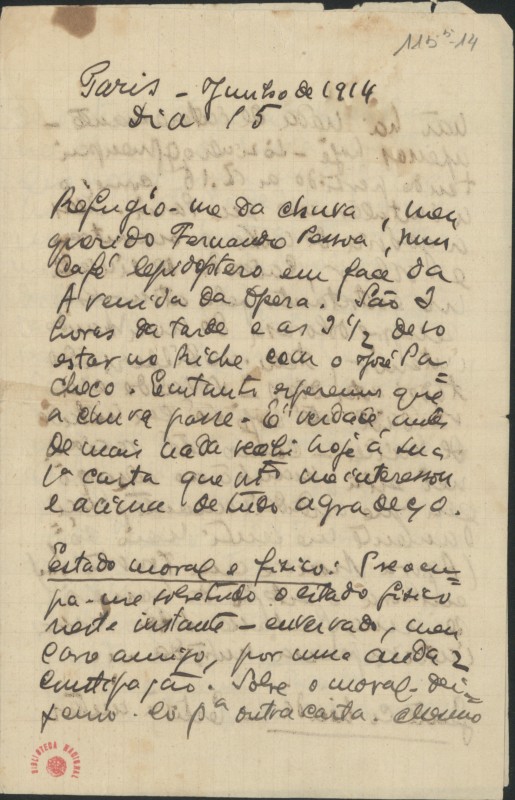 115⁵-14
Paris - Junho de 1914
Dia 15
Refugio-me da chuva, meu
querido Fernando Pessoa, num
Café lepidoptero em face da
Avenida da Opera. São 2
horas da tarde e as 2 1/2 devo
estar no Riche com o José Pa=
checo. Emtanto esperemos que
a chuva passe - É verdade, antes
de mais nada recebi hoje a sua
1ª carta que mto me interessou
e acima de tudo agradeço.
Estado moral e fisico: Preocu=
pa-me sobretudo o estado fisico
neste instante - enervado, meu
caro amigo, por uma
constipação. Sobre o moral - dei=
xemo-lo pª outra carta.
BIBLIOTECA NACIONAL